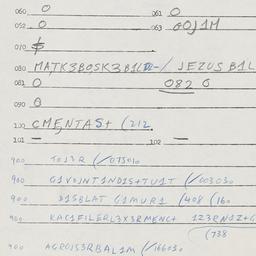 060 0 061 0
052 0 063 00J1M
070
080 MATK3BOSK3B1L / JEZUS B1L
081 0 082 0
090 0
100 CMENTAS+ (212
101 — 102 —
900 T0J3R (/073010
900 G1V0JNT1ND1S+TU1T (/003030
900 D1SBLAT G1MUR1 (408 (160
900 KAC1FILERL3X3RMENC+ 123RN1Z+G
(738
900 AGROIS3RBAL1M (/166030